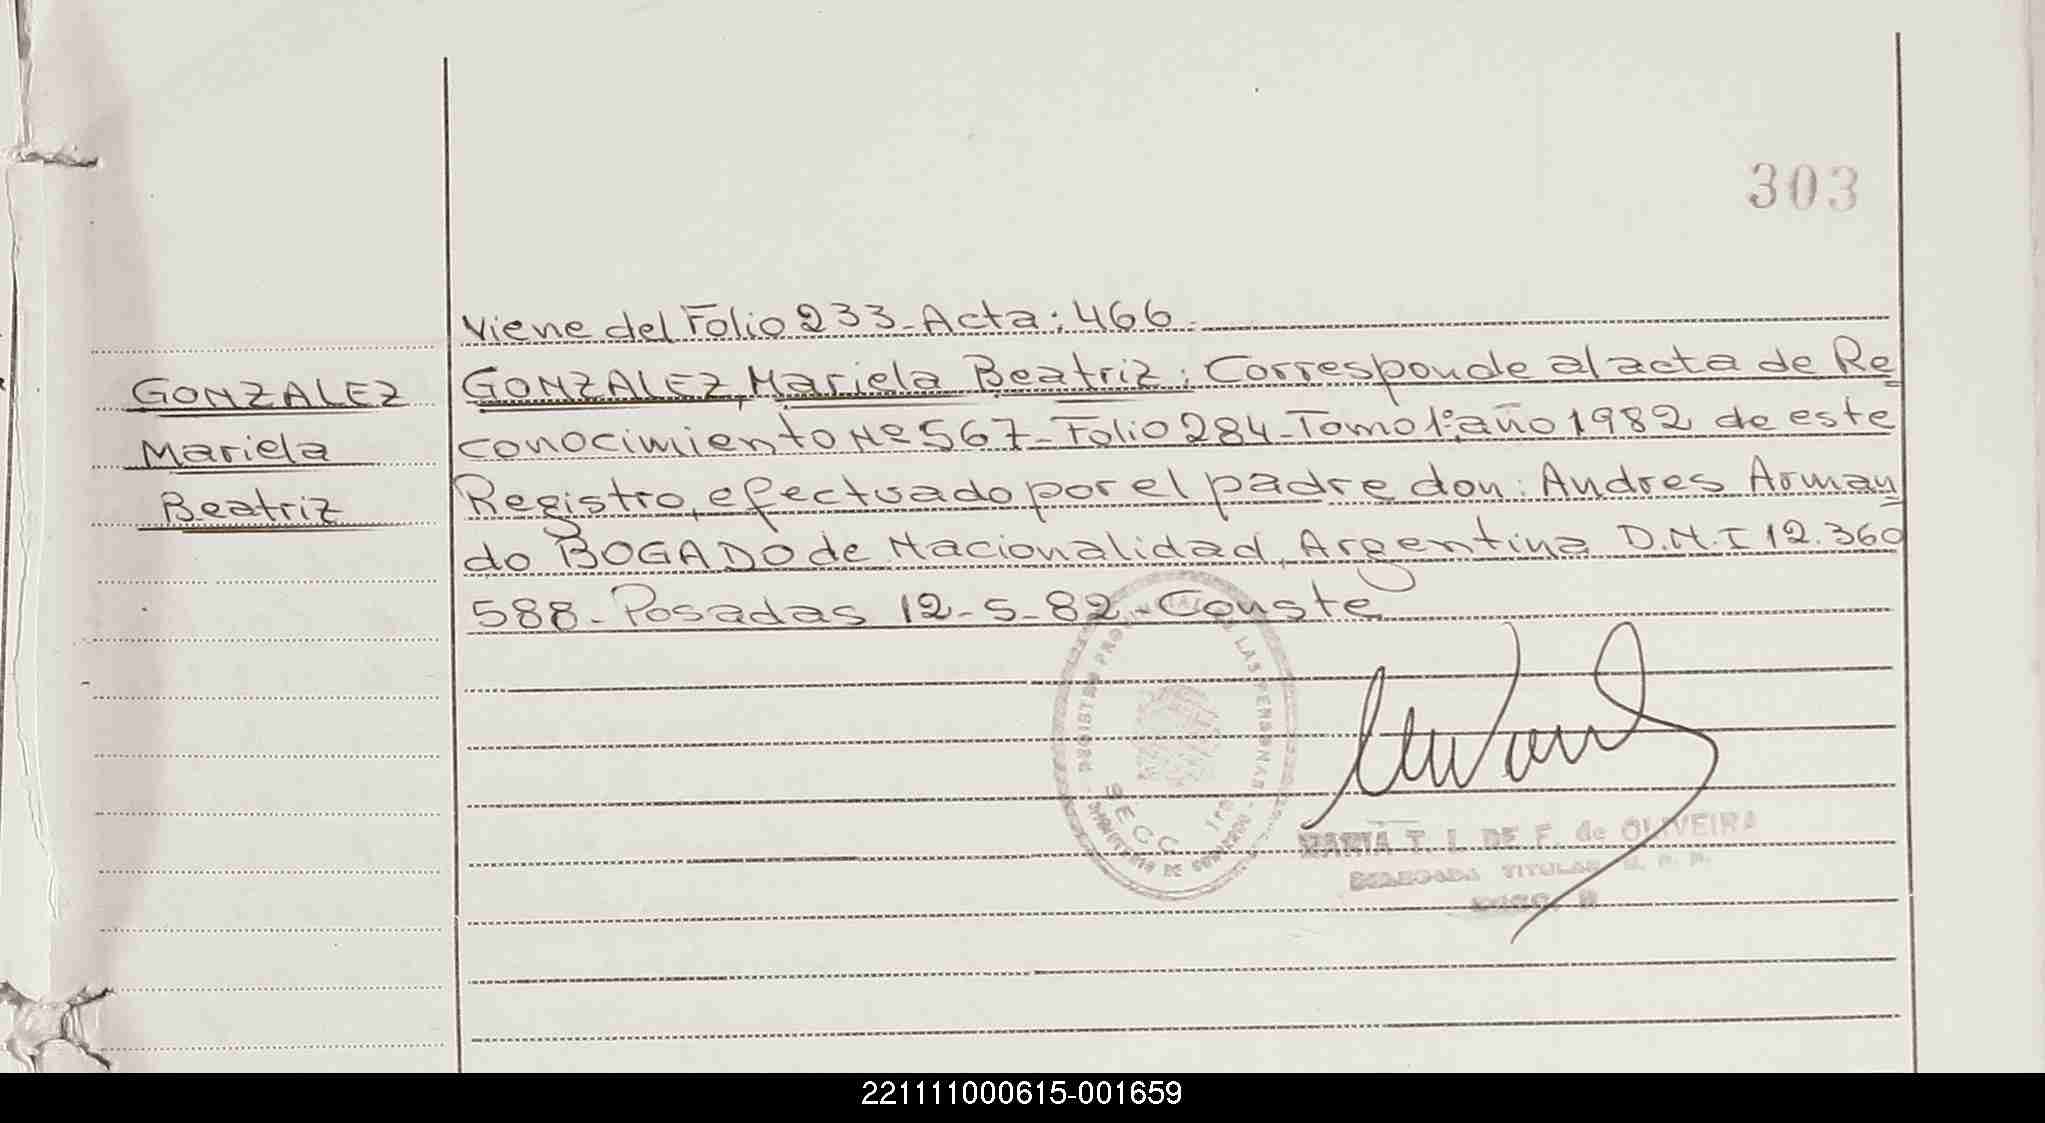 303
Viene del Folio 233_Acta: 466
GONZALEZ
Mariela
Beatriz
GONZALEZ, Mariela Beatriz; Corresponde al acta de Re
conocimiento Nº 567_Folio 284_Tomo 1º, año 1982 de este
Registro, efectuado por el padre don: Andres Arman
do BOGADO de Nacionalidad, Argentina D.N.I 12.360
588_Posadas 12-5-82_Conste
REGISTRO LAS PERSONAS
SECC 1ra
MARIA T. L. DE F. de OLIVEIRA
DELEGADA TITULAR
221111000615-001659